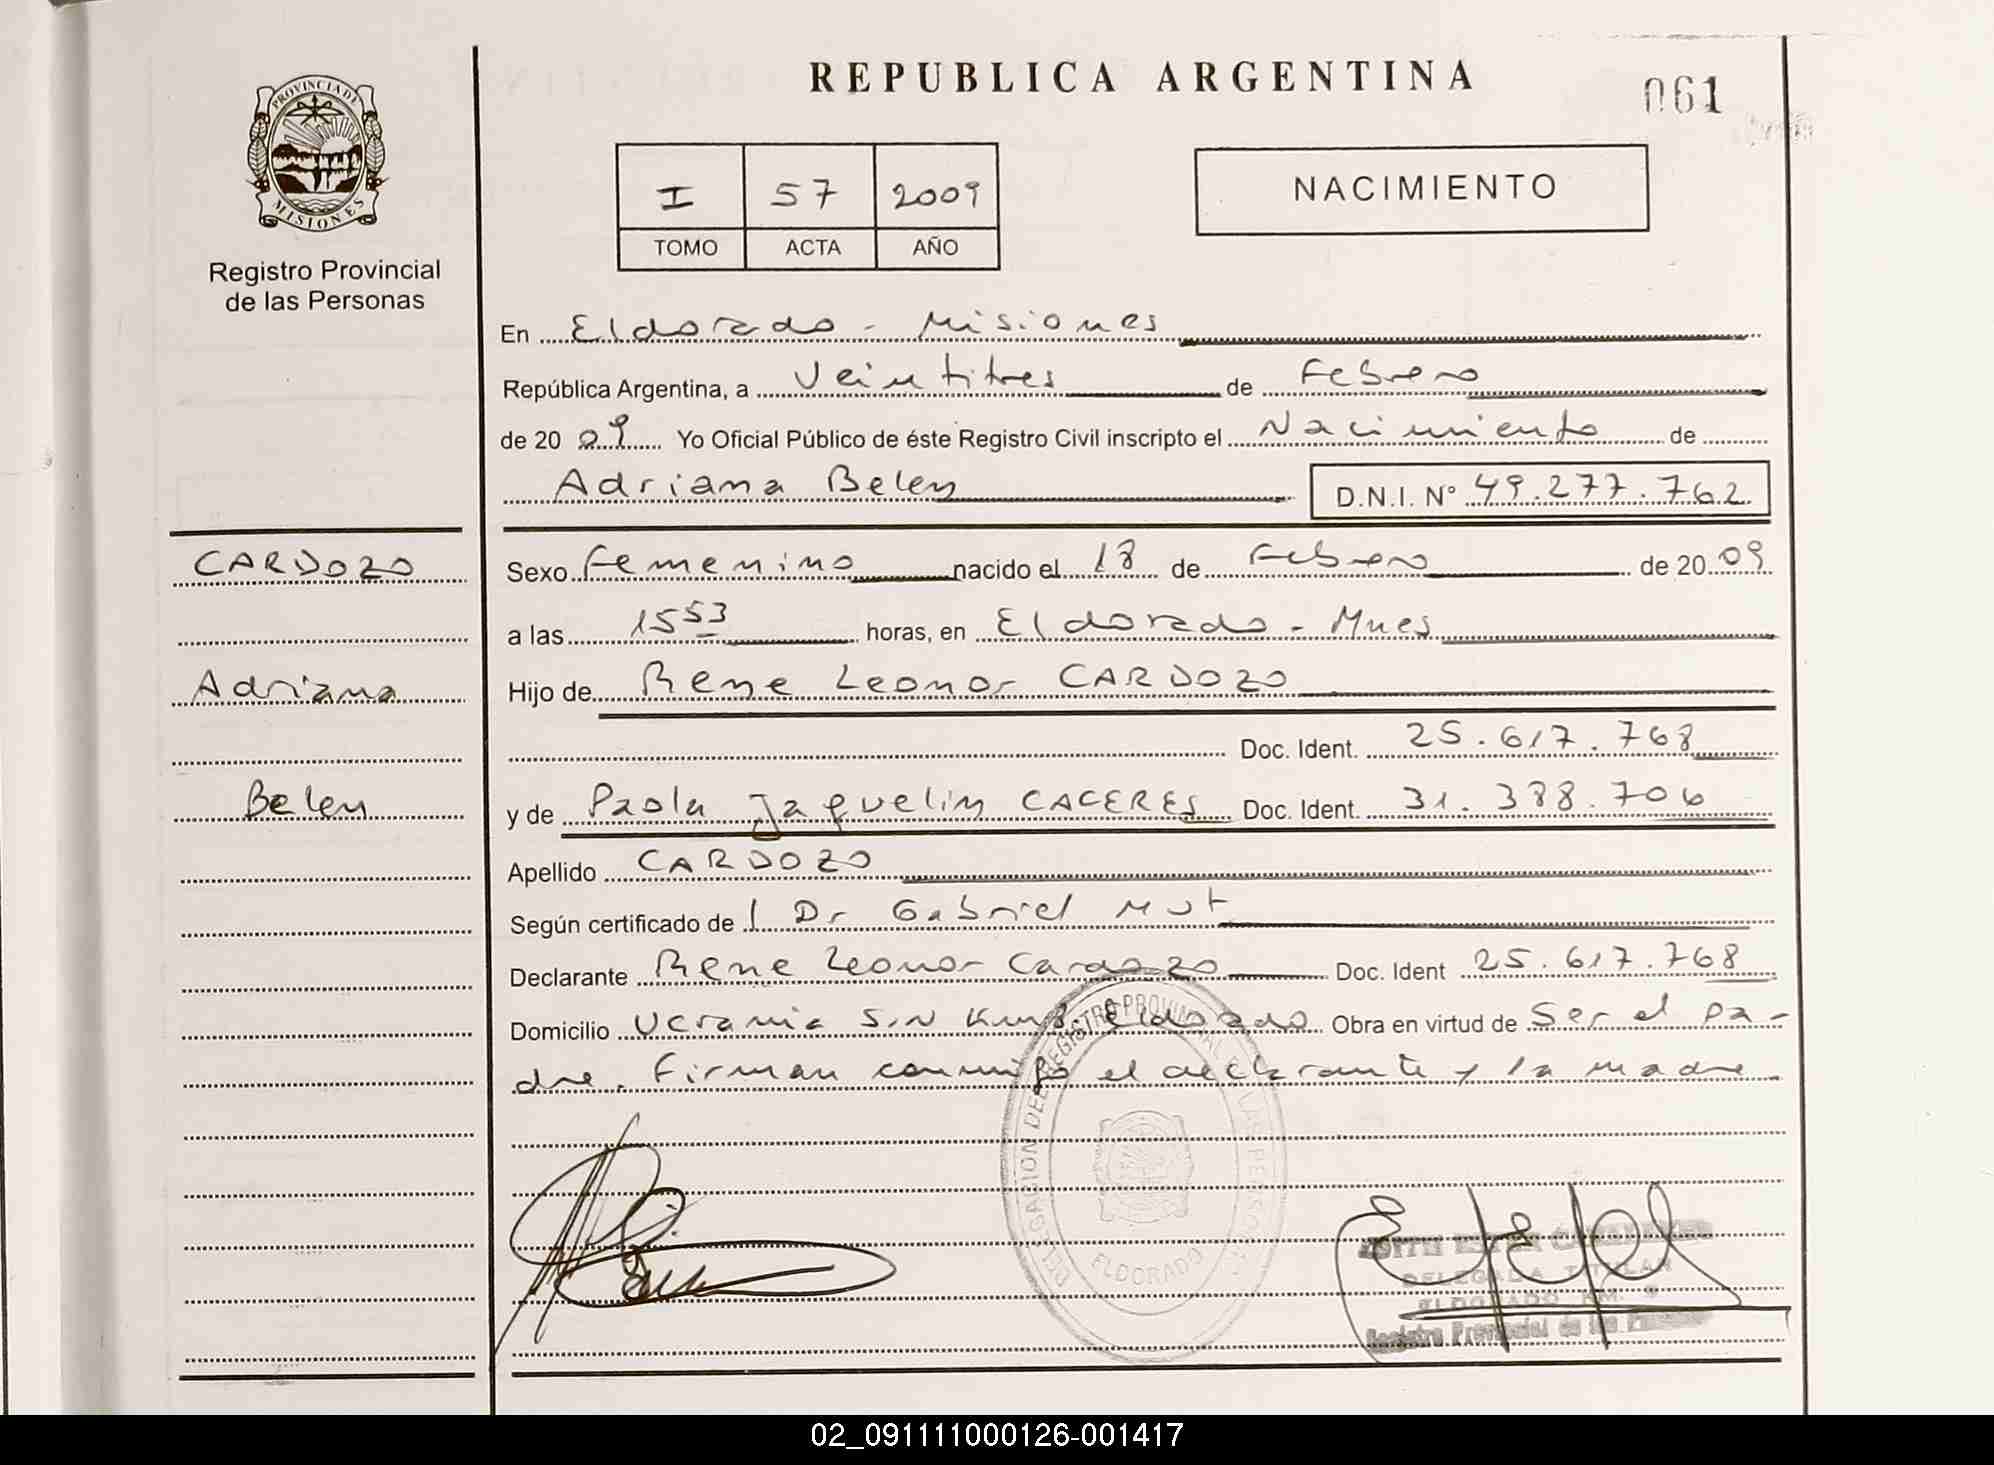 REPUBLICA ARGENTINA
061
PROVINCIA DE
MISIONES
Registro Provincial
de las Personas
I 57 2009
TOMO ACTA AÑO
NACIMIENTO
En Eldorado - Misiones
República Argentina, a Veintitres de Febrero
de 20 09 Yo Oficial Público de éste Registro Civil inscripto el Nacimiento de
Adriana Belen D.N.I. N° 49.277.762
CARDOZO
Adriana
Belen
Sexo Femenino nacido el 18 de Febrero de 20 09
a las 15 53 horas, en Eldorado - Mnes
Hijo de Rene Leonor CARDOZO
Doc. Ident. 25.617.768
y de Paola Jaquelin CACERES Doc. Ident. 31.388.706
Apellido CARDOZO
Según certificado de l Dr Gabriel Mut
Declarante Rene Leonor Cardozo Doc. Ident 25.617.768
Domicilio Ucrania S/N Eldorado Obra en virtud de Ser el pa-
dre. Firman el declarante y la madre
DELEGACION DEL REGISTRO PROVINCIAL DE LAS PERSONAS
ELDORADO
DELEGADA TITULAR
ELDORADO KM. 9
Registro Provincial de las Personas
02_091111000126-001417